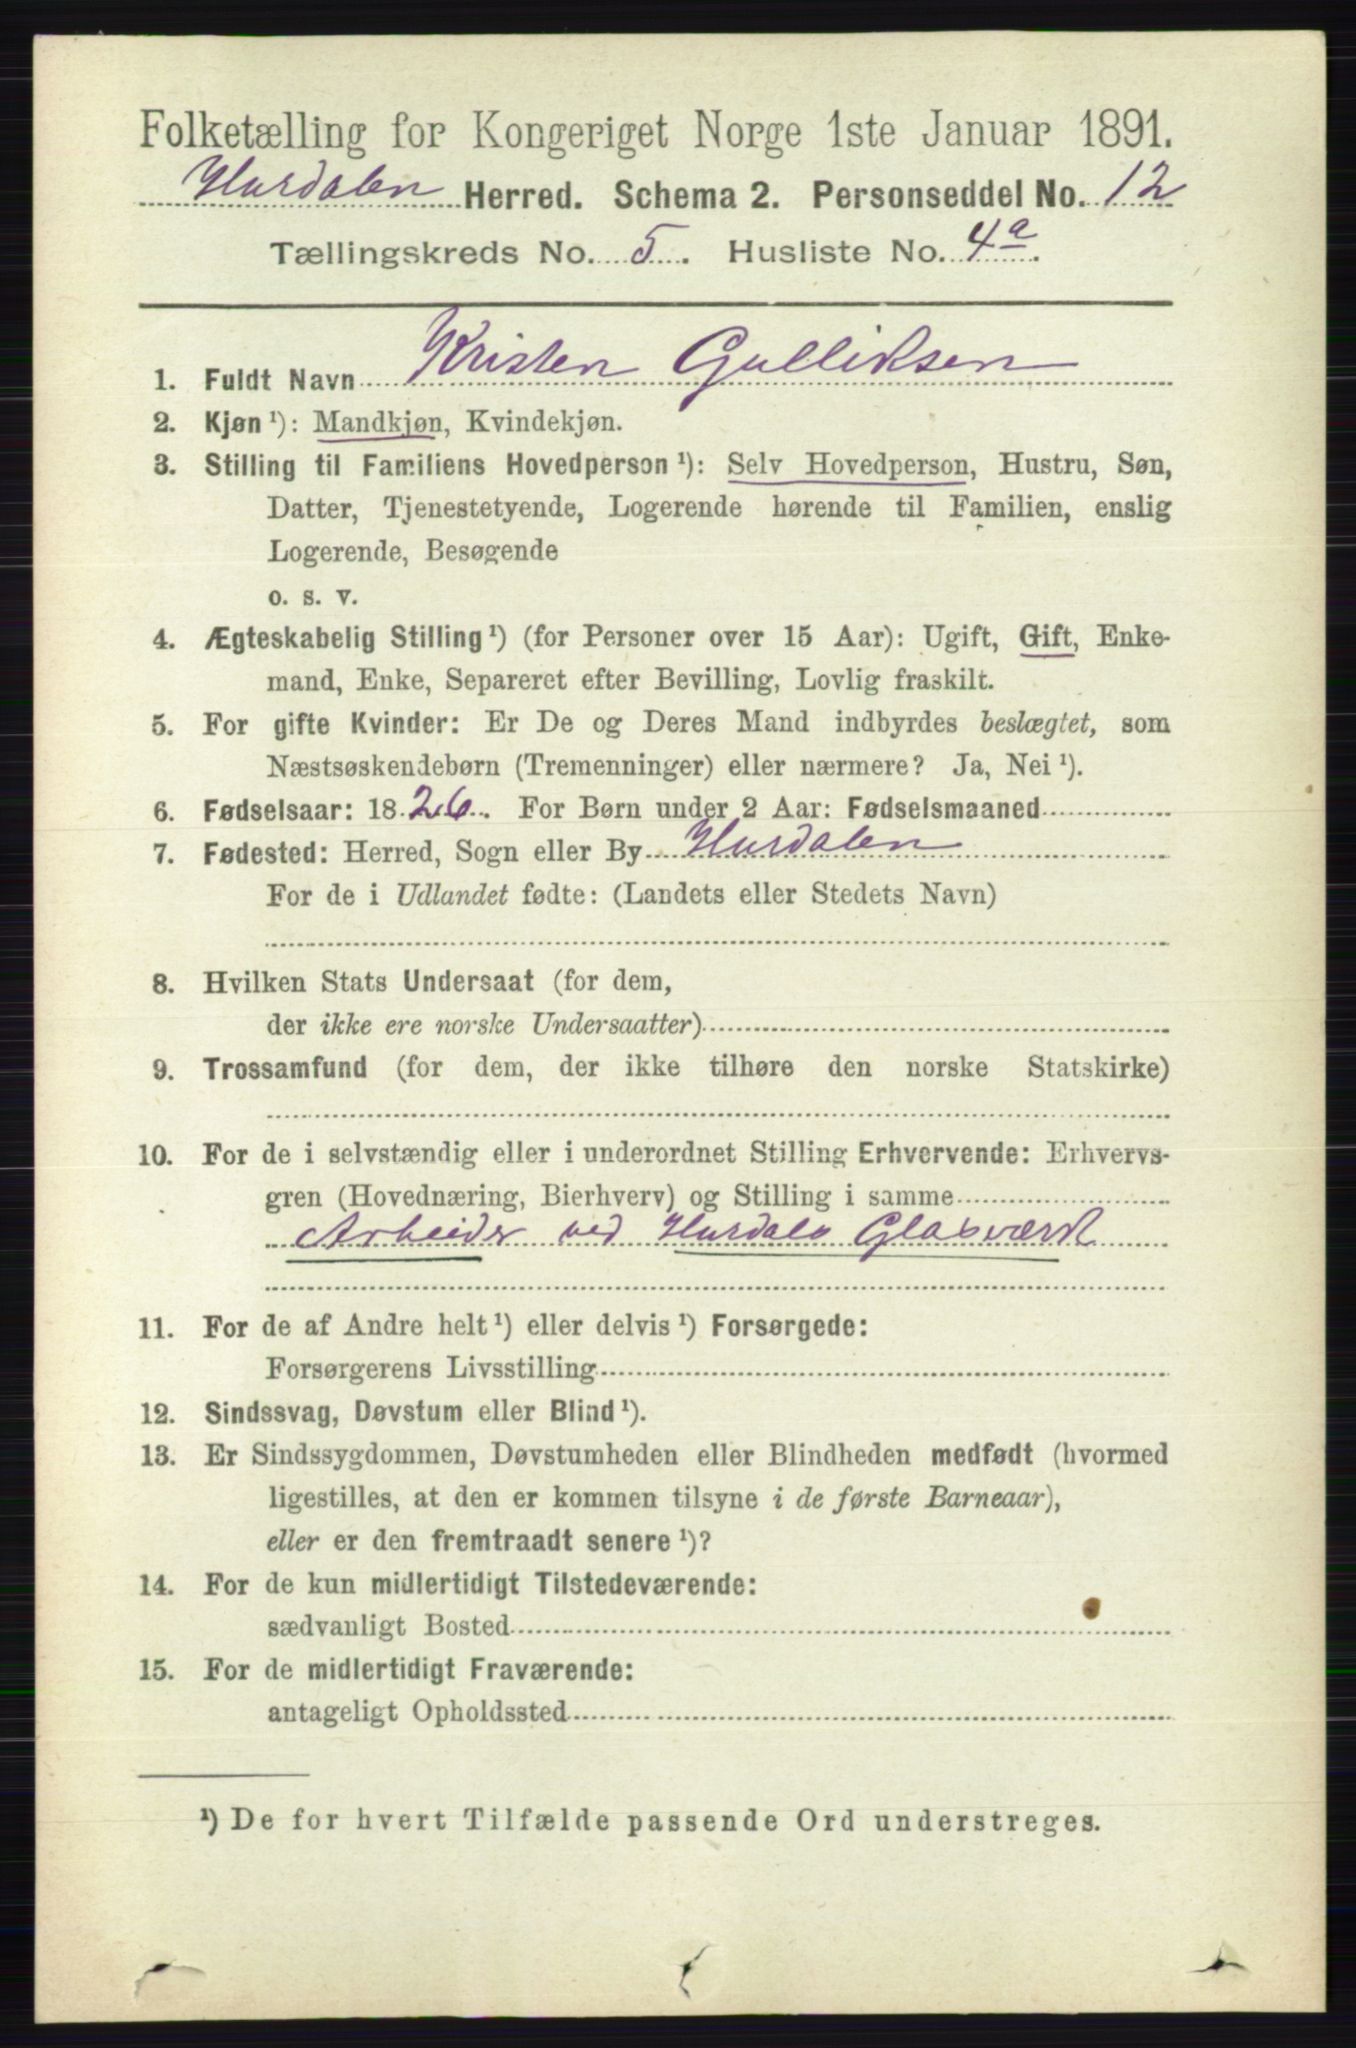 Folketælling for Kongeriget Norge 1ste Januar 1891.
Hurdalen Herred. Schema 2. Personseddel No. 12
Tællingskreds No. 5. Husliste No. 4a.
1. Fuldt Navn Kristen Gulliksen
2. Kjøn ¹): Mandkjøn, Kvindekjøn.
3. Stilling til Familiens Hovedperson ¹): Selv Hovedperson, Hustru, Søn,
Datter, Tjenestetyende, Logerende hørende til Familien, enslig
Logerende, Besøgende
o. s. v.
4. Ægteskabelig Stilling ¹) (for Personer over 15 Aar): Ugift, Gift, Enke-
mand, Enke, Separeret efter Bevilling, Lovlig fraskilt.
5. For gifte Kvinder: Er De og Deres Mand indbyrdes beslægtet, som
Næstsøskendebørn (Tremenninger) eller nærmere? Ja, Nei ¹).
6. Fødselsaar: 1826. For Børn under 2 Aar: Fødselsmaaned
7. Fødested: Herred, Sogn eller By Hurdalen
For de i Udlandet fødte: (Landets eller Stedets Navn)
8. Hvilken Stats Undersaat (for dem,
der ikke ere norske Undersaatter)
9. Trossamfund (for dem, der ikke tilhøre den norske Statskirke)
10. For de i selvstændig eller i underordnet Stilling Erhvervende: Erhvervs-
gren (Hovednæring, Bierhverv) og Stilling i samme
Arbeider ved Hurdals Glasværk
11. For de af Andre helt ¹) eller delvis ¹) Forsørgede:
Forsørgerens Livsstilling
12. Sindssvag, Døvstum eller Blind ¹).
13. Er Sindssygdommen, Døvstumheden eller Blindheden medfødt (hvormed
ligestilles, at den er kommen tilsyne i de første Barneaar),
eller er den fremtraadt senere ¹)?
14. For de kun midlertidigt Tilstedeværende:
sædvanligt Bosted
15. For de midlertidigt Fraværende:
antageligt Opholdssted
¹) De for hvert Tilfælde passende Ord understreges.